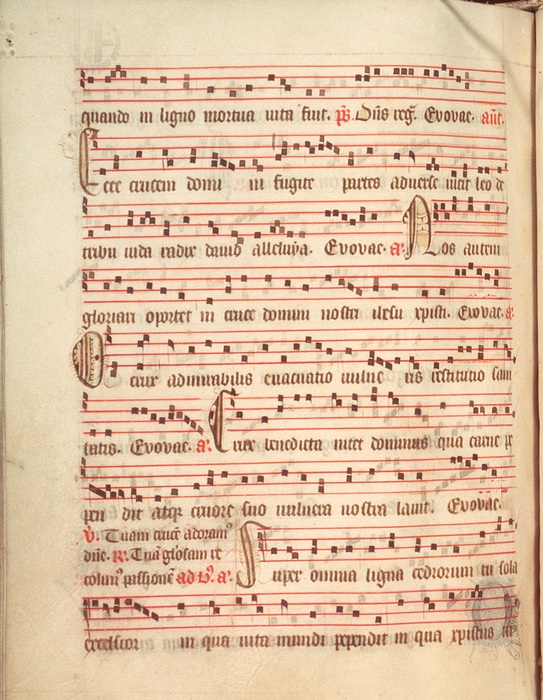 quando in ligno mortua uita fuit. ps. Dñs reg̃. Evovae. añt.
Ecce crucem domi ni fugite partes aduerse uicit leo de
tribu iuda radix dauid alleluya. Evovae. a. Nos autem
gloriari oportet in cruce domini nostri ihesu xpisti. Evovae. a.
O crux admirabilis euacuatio uulne ris restitutio sani
tatis. Evovae. a. Crux benedicta nitet dominus qua carne
pen dit atque cruore suo uulnera nostra lauit. Evovae.
V. Tuam crucē adoram᷒
dñe. R. Tuā gloriosam re
colim᷒ passionē ad a. Super omnia ligna cedrorum tu sola
excelsior in qua uita mundi pependit in qua xpistus